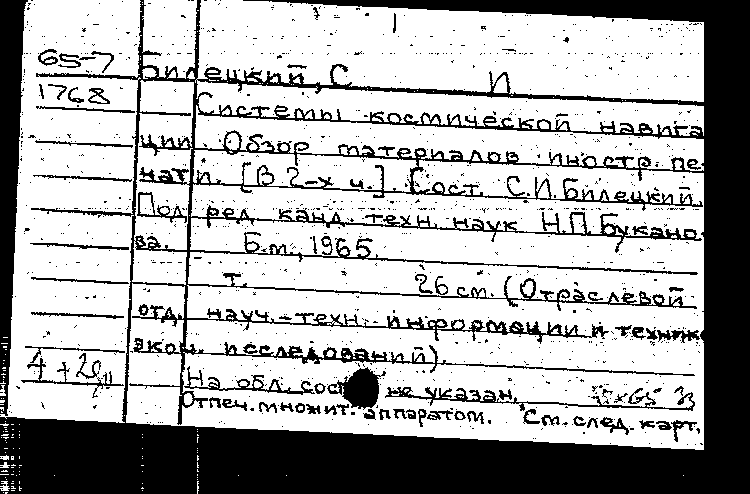 65-7 Билецкий, С И
1768 Системы космической навига
ции. Обзор материалов иностр. пе-
чати. [В 2-х ч.]. Сост. С.И. Билецкий.
Под ред. канд. техн. наук Н.П. Букано-
ва. Б.м., 1965.
т. 26 см. (Отраслевой
отд. науч.-техн. информации и технико
экон. исследований).
4 + 20
На обл. сост. не указан.
Отпеч. множит. аппаратом. См. след. карт.